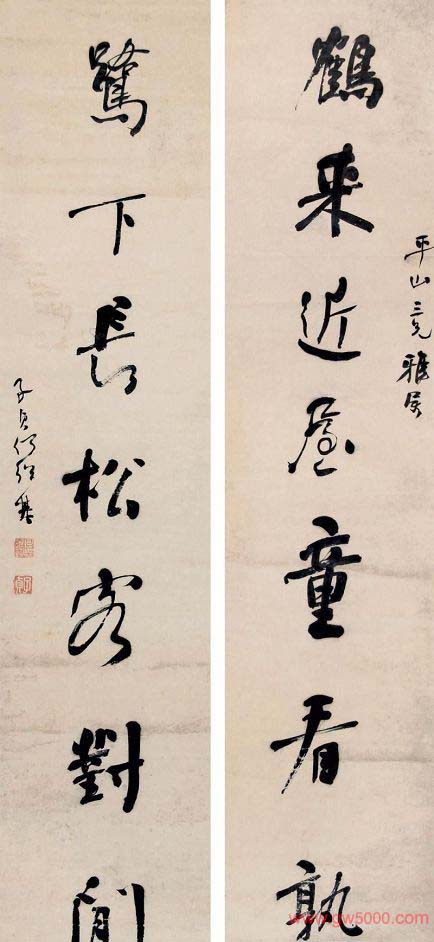 平山三兄雅属
鶴来近屋童看孰
鷺下長松客對閒
子貞何紹基
www.gw5000.com